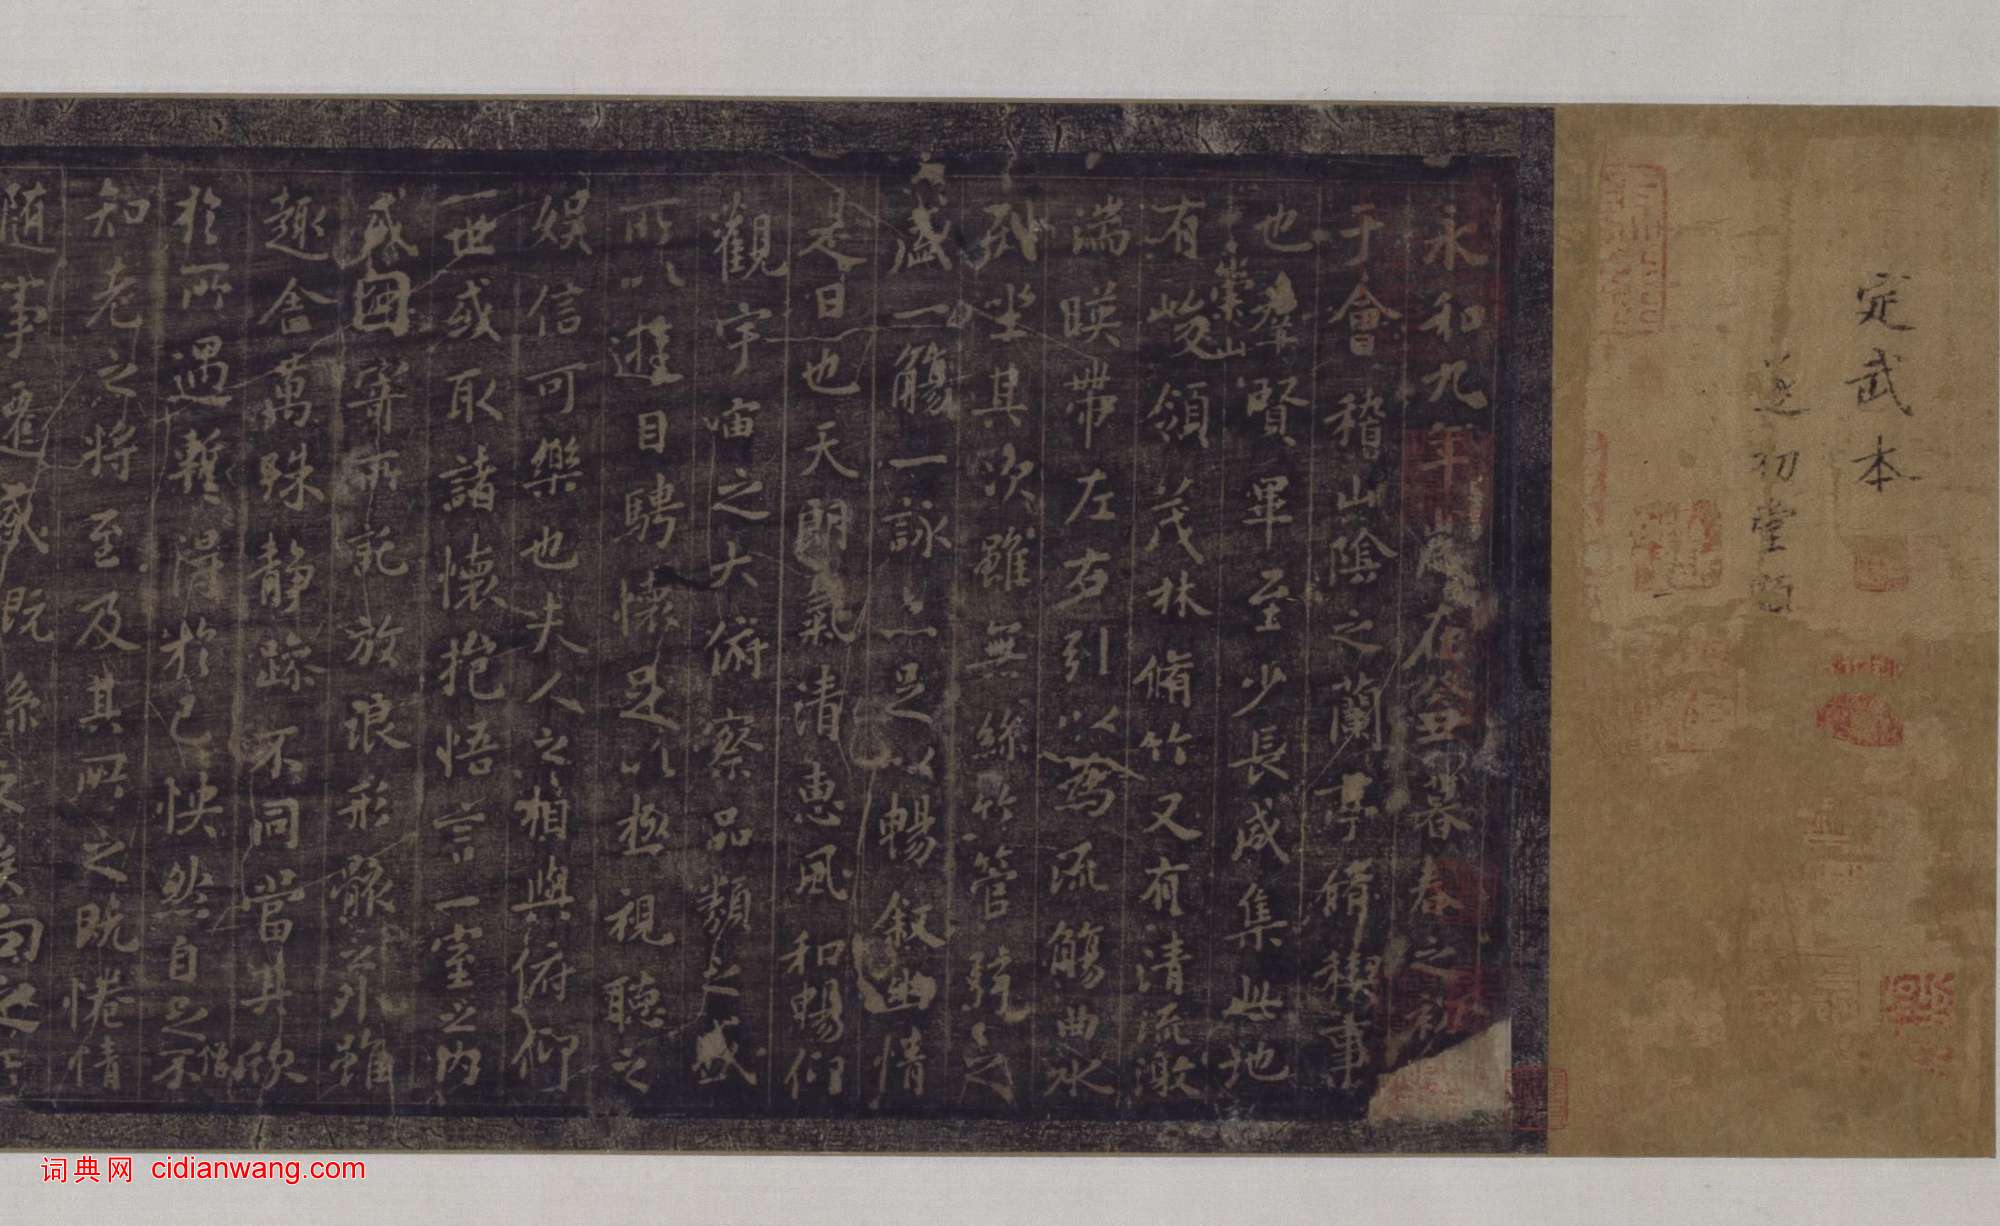 定武本
遂初堂
永和九年歲在癸丑暮春之初
于會稽山陰之蘭亭脩稧事
也羣賢畢至少長咸集此地
有崇山峻領茂林脩竹又有清流激
湍暎帶左右引以為流觴曲水
列坐其次雖無絲竹管弦之
盛一觴一詠亦足以暢敘幽情
是日也天朗氣清惠風和暢仰
觀宇宙之大俯察品類之盛
所以遊目騁懷足以極視聽之
娛信可樂也夫人之相與俯仰
一世或取諸懷抱悟言一室之內
或因寄所託放浪形骸之外雖
趣舍萬殊靜躁不同當其欣
於所遇蹔得於己怏然自足不
知老之將至及其所之既惓情
隨事遷感既係之矣向之所
词典网 cidianwang.com